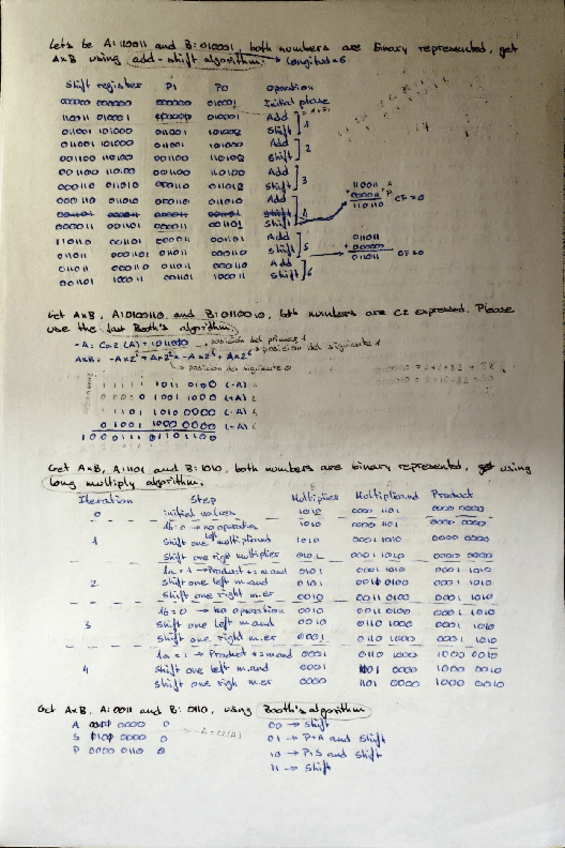 Lets be A:110011 and B:010001, both numbers are binary represented, get
AxB using add-shift algorithm. → Longitud=6
Shift register P1 P0 Operation
000000 000000 000000 010001 Initial phase
110011 010001 010001 Add
011001 101000 011001 101000 Shift 1
011001 101000 011001 101000 Add
001100 110100 001100 110100 Shift 2
001100 110100 001100 110100 Add
000110 011010 000110 011010 Shift 3
000110 011010 000110 011010 Add
000011 001101 000011 001101 Shift
110110 001101 000011 001101 Add
011011 000110 011011 000110 Shift 5
011011 000110 011011 000110 Add
001101 100011 Shift 6
110011 A
+ 000011 P1
110110 CF=0
011011
+ 000000
011011 CF=0
Get AxB, A:0100110 and B:0110010, both numbers are C2 expressed. Please
use the last Booth's algorithm.
-A: Ca2 (A) = 1011010 → posición del primer 1
AxB = -Ax2 + Ax2 - Ax2 + Ax2 → posición del siguiente 1
→ posición del siguiente 0
1 1 1 1 1 1 1011 0100 (-A)
1001 1000 (+A)
1 1 1 0 1 1010 0000 (-A)
0 1001 1000 0000 (+A)
1 0 0 0 1 1 1 0 1101100
Get AxB, A:1101 and B:1010, both numbers are binary represented, get using
long multiply algorithm.
Iteration Step Multiplier Multiplicand Product
0 initial values 1010 0000 1101 0000 0000
1b:0 → no operation 1010 0000 1101 0000 0000
1 Shift one left multiplicand 1010 0001 1010 0000 0000
Shift one right multiplier 0101 0001 1010 0000 0000
1a:1 → Product += m.and 0101 0001 1010 0001 1010
2 Shift one left m.and 0101 0011 0100 0001 1010
Shift one right m.er 0010 0011 0100 0001 1010
1b=0 → no operation 0010 0011 0100 0001 1010
3 Shift one left m.and 0010 0110 1000 0001 1010
Shift one right m.er 0001 0110 1000 0001 1010
1a=1 → Product += m.and 0001 0110 1000 1000 0010
4 Shift one left m.and 0001 1101 0000 1000 0010
Shift one righ m.er 0000 1101 0000 1000 0010
Get AxB, A:0011 and B:0110, using Booth's algorithm
A 0011 0000 0 00 → Shift
S 1101 0000 0 → -A=C2(A) 01 → P+A and Shift
P 0000 0110 0 10 → P+S and Shift
11 → Shift